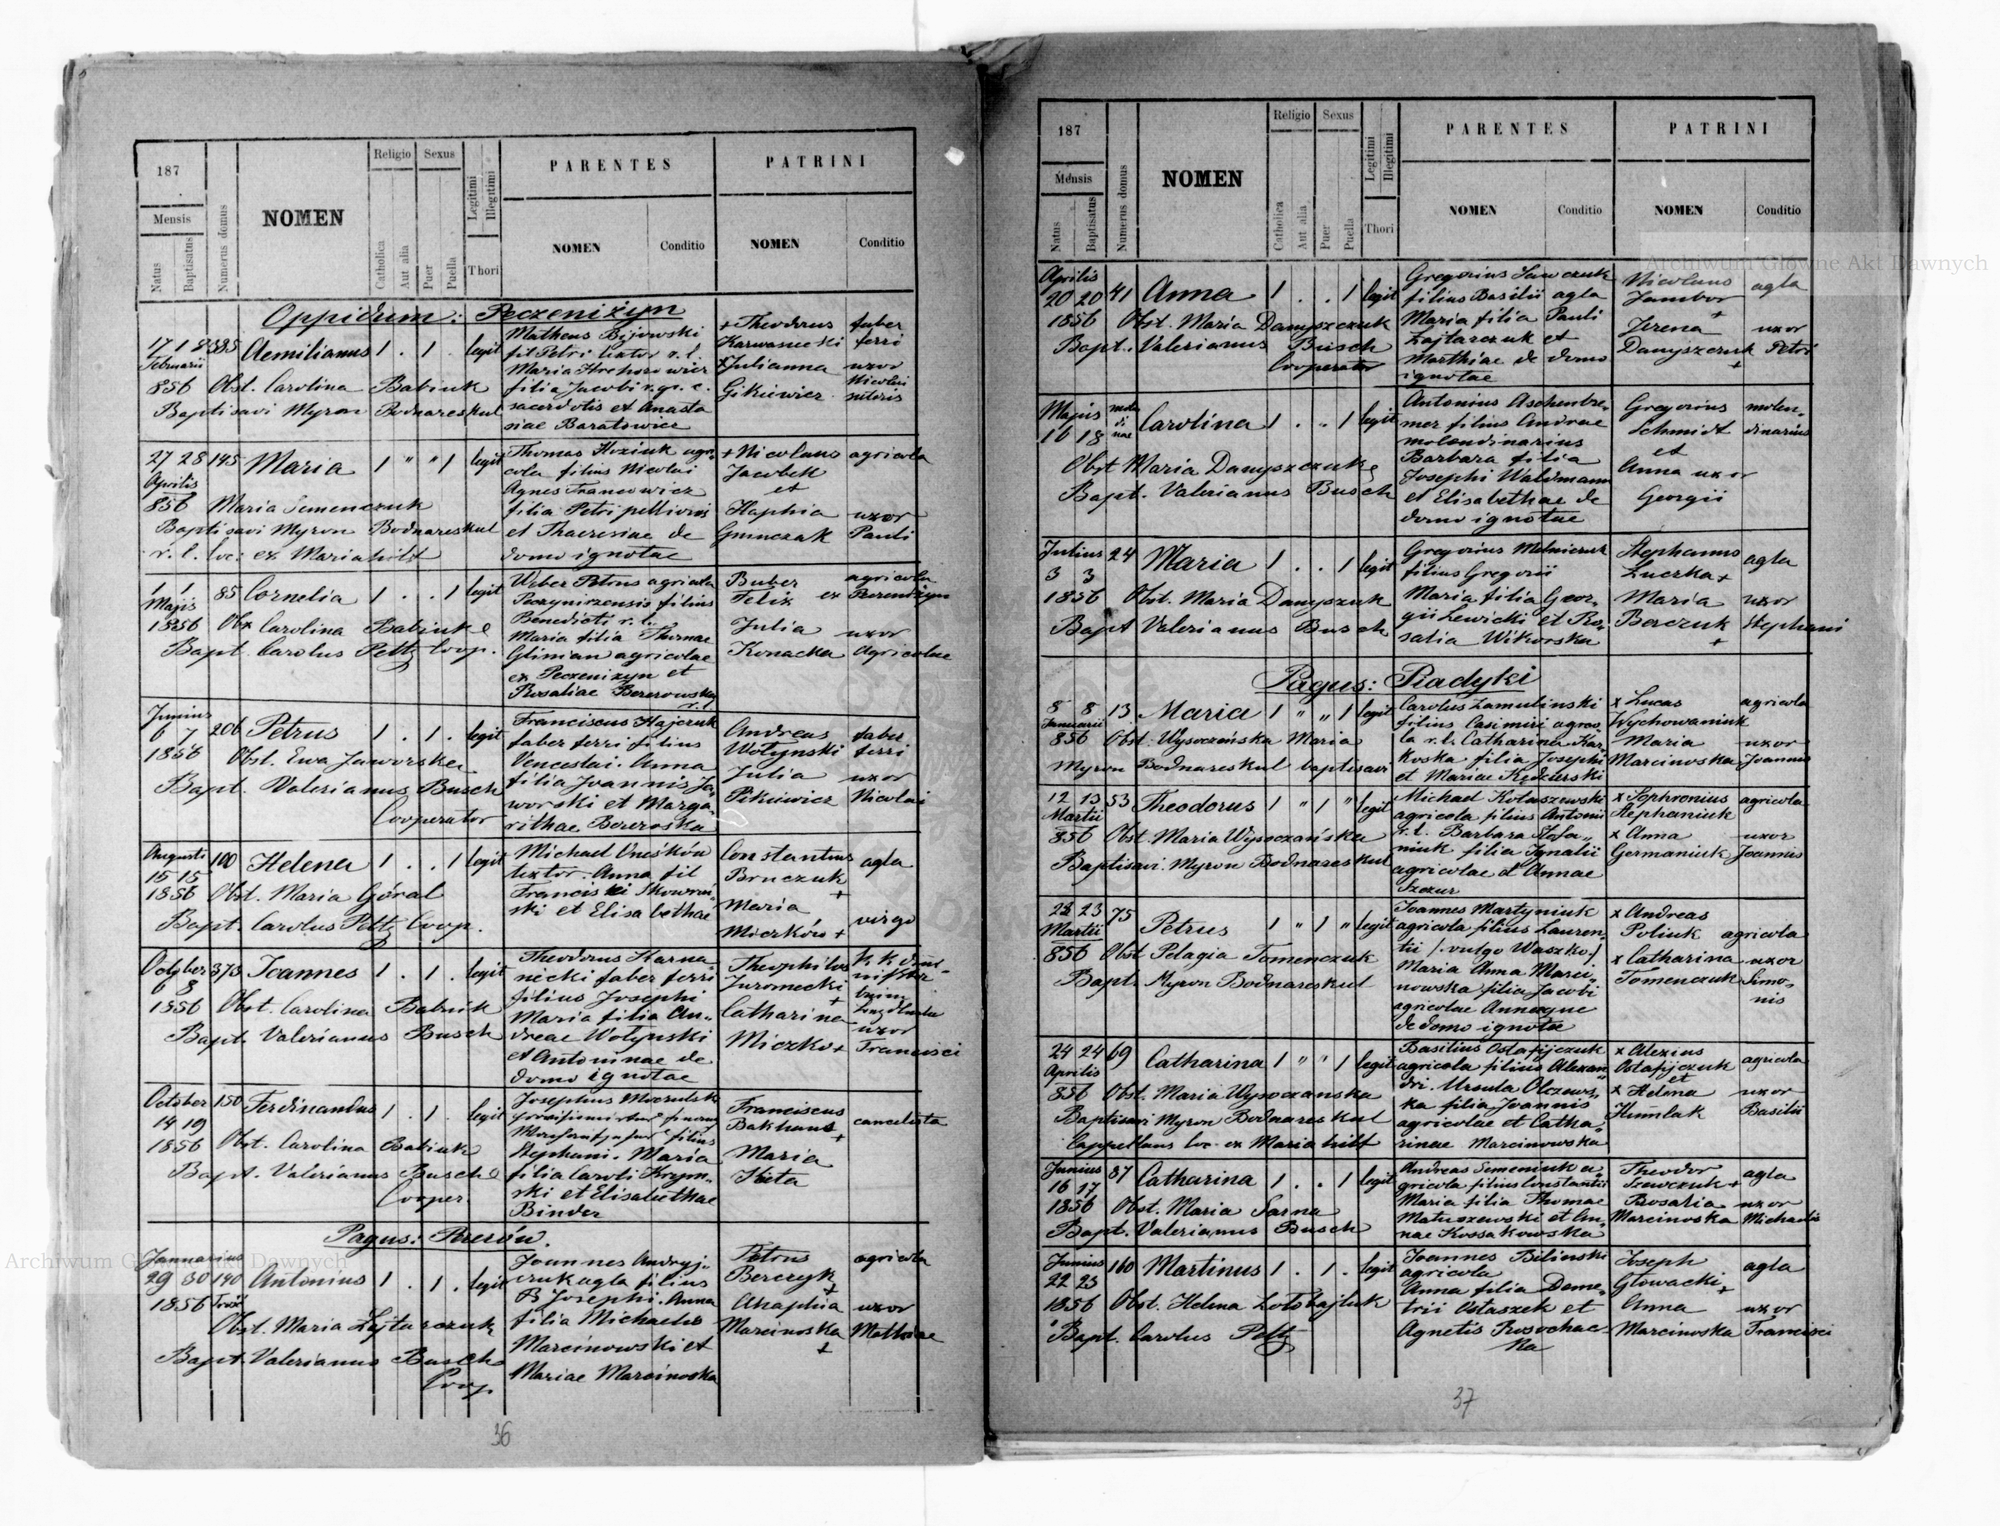 187
Mensis
Natus
Baptisatus
Numerus domus
NOMEN
Religio
Catholica
Aut alia
Sexus
Puer
Puella
Legitimi
Illegitimi
Thori
PARENTES
NOMEN
Conditio
PATRINI
NOMEN
Conditio
Oppidum: Peczeniżyn
17 18 385 Aemilianus 1 . 1 . legit
Februarii
856 Obst. Carolina Babiuk
Baptisavi Myron Bodnareskul
Matheus Bijowski
fil Petri textor r. l.
Maria Hrehorowicz
filia Jacobi r. gr. c.
sacerdotis et Anasta
siae Baratowicz
+ Theodorus faber
Karwasiecki ferri
x Julianna uxor
Gikiewicz Nicolai
27 28 145 Maria 1 " " 1 legit
Aprilis
856 Maria Semenczuk
Baptisavi Myron Bodnareskul
r. l. loc: ex Mariahilf
Thomas Hoziuk agri
cola filius Nicolai
Agnes Francowicz
filia Petri pellionis
et Thaeresiae de
domo ignotae
+ Nicolaus agricola
Jacobek
et
Haphia uxor
Gunczak Pauli
1 1 85 Cornelia 1 . . 1 legit
Majis
1856 Obs Carolina Babiuk
Bapt. Carolus Peltz Coop.
Weber Petrus agricola
filius
Benedicti r. l.
Maria filia Thomae
Gliman agricolae
ex Peczenizyn et
Rosaliae Bererowska
r. l.
Buber agricola
Felix ex
Julia uxor
Konacka Agricolae
Junius
6 7 206 Petrus 1 . 1 . legit
1856 Obst. Ewa Jaworska
Bapt. Valerianus Busch
Cooperator
Franciscus Hajczuk
faber ferri filius
Venceslai. Anna
filia Joannis Ja
worski et Marga
rithae Bereroska
Andreas faber
Wolynski ferri
Julia uxor
Pikiewicz Nicolai
Augusti
15 15 100 Helena 1 . . 1 legit
1856 Obst. Maria Góral
Bapt. Carolus Peltz Coop.
Michael
textor. Anna fil
Francisci Skowroń
ski et Elisabethae
Constantius agla
Bruczuk +
Maria
Miczków + virgo
October 373 Joannes 1 . 1 . legit
6 8
1856 Obst. Carolina Babiuk
Bapt. Valerianus Busch
Theodorus Karna
niecki faber ferri
filius Josephi
Maria filia An-
dreae Wołynski
et Antoninae de
domo ignotae
Theophilus
Juromecki
+
Catharina uxor
Miczko + Francisci
October 150 Ferdinandus 1 . 1 . legit
14 19
1856 Obst. Carolina Babiuk
Bapt. Valerianus Busch
Cooper.
Josephus
filius
Stephani. Maria
filia Caroli Krzym-
ski et Elisabethae
Binder
Franciscus cancelista
Bakhaus +
Maria
Kieta
Pagus: Berezów.
Januarius
29 30 140 Antonius 1 . 1 . legit
1856
Obst. Maria Zajtarczuk
Bapt. Valerianus Busch
Coop
Joannes Andryj-
czuk agla filius
B Josephi. Anna
filia Michaelis
Marcinowski et
Mariae Marcinoska
Petrus agricola
Berczyk +
Ahaphia uxor
Marcinoska Mathiae
+
36
187
Mensis
Natus
Baptisatus
Numerus domus
NOMEN
Religio
Catholica
Aut alia
Sexus
Puer
Puella
Legitimi
Illegitimi
Thori
PARENTES
NOMEN
Conditio
PATRINI
NOMEN
Conditio
Aprilis
20 20 41 Anna 1 . . 1 legit
1856 Obst. Maria Danyszczuk
Bapt. Valerianus Busch
Cooperator
Gregorius Sawczuk
filius Basilii agla
Maria filia Pauli
Zajtarczuk et
Marthiae de domo
ignotae
Nicolaus agla
Jambor
+
Jrena uxor
Danyszczuk Petri
+
Majus
16 18 Carolina 1 . . 1 legit
Obst Maria Danyszczuk
Bapt. Valerianus Busch
Antonius Aschenbre-
ner filius Andreae
molendinarius
Barbara filia
Josephi Waldmann
et Elisabethae de
domo ignotae
Gregorius molen-
Schmidt dinarius
et
Anna uxor
Georgii
Julius 24 Maria 1 . . 1 legit
3 3
1856 Obst. Maria Danyszuk
Bapt Valerianus Busch
Gregorius Melniczuk
filius Gregorii
Maria filia Geor-
gii Lewicki et Ro-
salia Wikorska
Stephanus agla
Luczka +
Maria uxor
Berczuk Stephani
+
Pagus: Piadyki
8 8 13 Maria 1 " " 1 legit
Januarii
856 Obst. Wysoczańska Maria
Myron Bodnareskul baptisavi
Carolus Zamulinski
filius Casimiri agrico
la r. l. Catharina Kar
koska filia Josephi
et Mariae Kędzierski
x Lucas agricola
Wychowaniuk
Maria uxor
Marcinoska Joannis
12 13 53 Theodorus 1 " 1 " legit
Martii
856 Obst Maria Wysoczańska
Baptisavi Myron Bodnareskul
Michael Kołaszewski
agricola filius Antonii
r. l. Barbara Stefa-
niuk filia Ignatii
agricolae et Annae
Szczur
x Sophronius agricola
Stephaniuk
x Anna uxor
Germaniuk Joannis
22 23 75 Petrus 1 " 1 " legit
Martii
856 Obst Pelagia Tomenczuk
Bapt. Myron Bodnareskul
Joannes Martyniuk
agricola filius Lauren-
tii /: vulgo Waszko :/
Maria Anna Marci
nowska filia Jacobi
agricolae Annaque
de domo ignotae
x Andreas
Poliuk agricola
x Catharina uxor
Tomenczuk Simo-
nis
24 24 69 Catharina 1 " " 1 legit
Aprilis
856 Obst. Maria Wysoczanska
Baptisavi Myron Bodnareskul
Cappellans loc. ex Mariahilf
Basilius Ostafijczuk
agricola filius Alexan
dri. Ursula Olczews
ka filia Joannis
agricolae et Catha-
rinae Marcinowska
x Alexius agricola
Ostafijczuk
et
x Helena uxor
Humlak Basilii
Junius 87 Catharina 1 . . 1 legit
16 17
1856 Obst. Maria Sarna
Bapt. Valerianus Busch
Andreas Semeniuk a-
gricola filius Constantii
Maria filia Thomae
Matuszewski et An-
nae Kossakowska
Theodor agla
Szewczuk +
Rosalia uxor
Marcinoska Michaelis
Junius 160 Martinus 1 . 1 . legit
22 23
1856 Obst. Helena Łotobajluk
Bapt. Carolus Peltz
Joannes Bilinski
agricola
Anna filia Deme-
trii Ostaszek et
Agnetis Rosochac-
ka
Joseph agla
Głowacki +
Anna uxor
Marcinoska Francisci
37
Archiwum Główne Akt Dawnych
Archiwum Główne Akt Dawnych